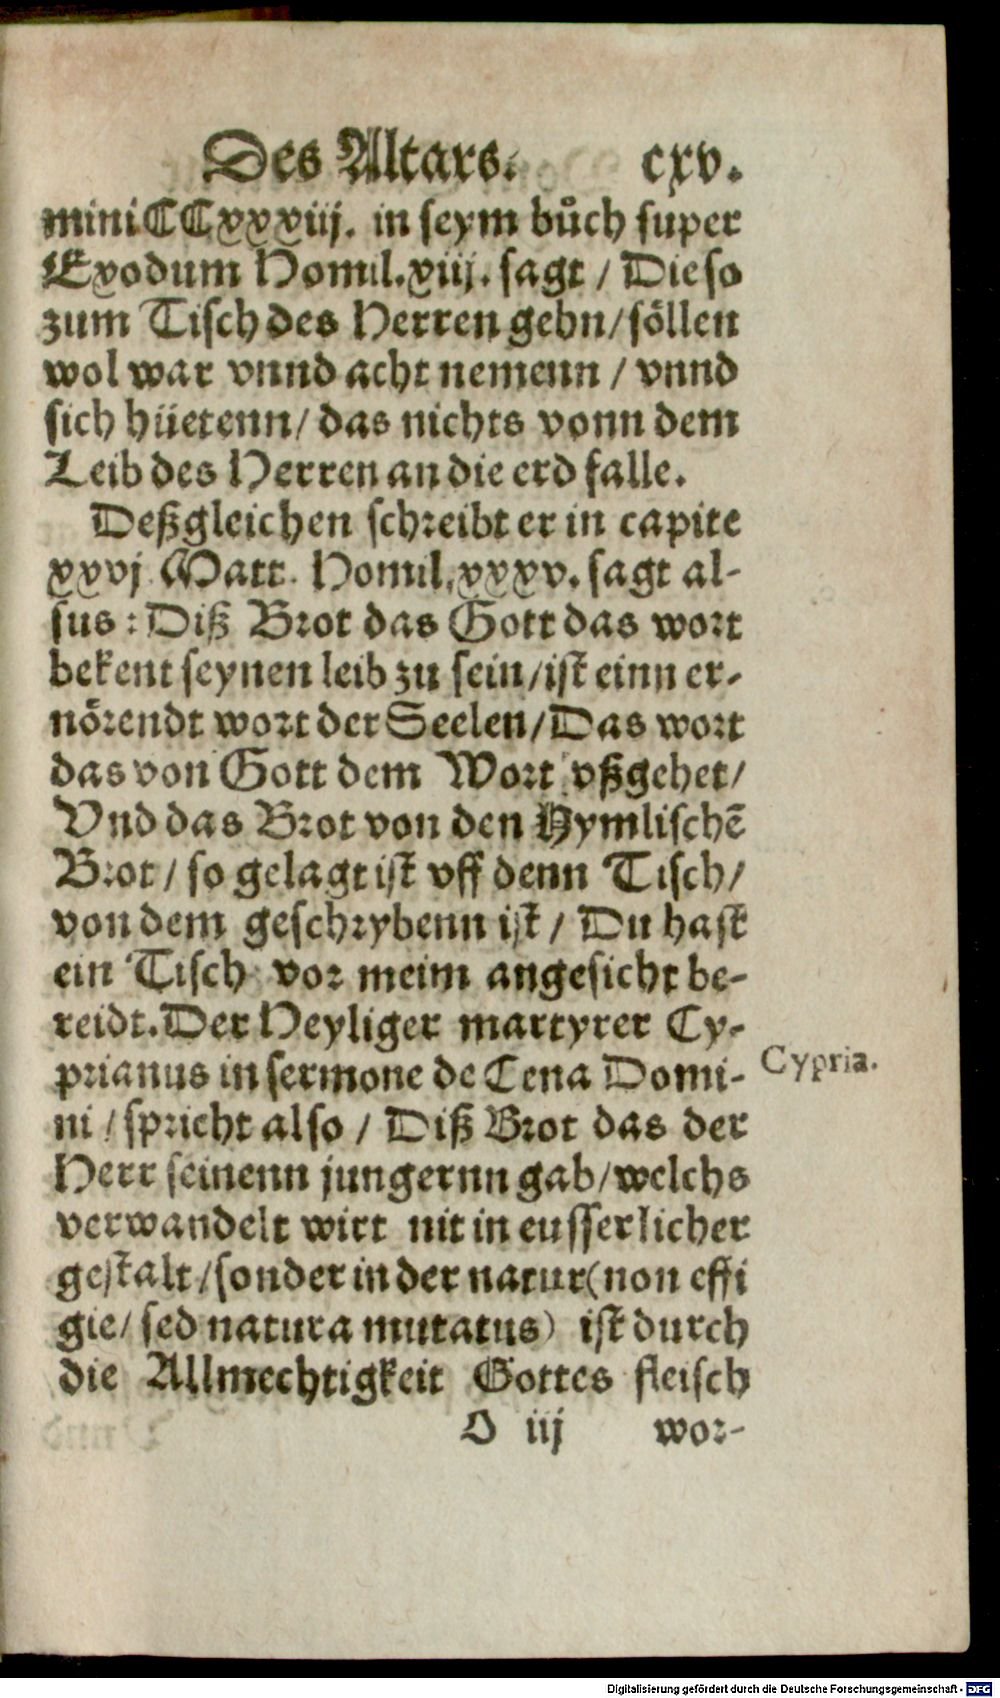 Des Altars. cxv.
mini CCxxxiij. in seym bůch super
Exodum Homil.xiij. sagt / Die so
zum Tisch des Herren gehn/söllen
wol war vnnd acht nemenn / vnnd
sich hüetenn/ das nichts vonn dem
Leib des Herren an die erd falle.
Deßgleichen schreibt er in capite
xxvj Matt. Homil.xxxv. sagt al-
sus: Diß Brot das Gott das wort
bekent seynen leib zu sein/ist einn er-
nörendt wort der Seelen/Das wort
das von Gott dem Wort vßgehet/
Vnd das Brot von den Hymlischẽ
Brot / so gelagt ist vff denn Tisch/
von dem geschrybenn ist / Du hast
ein Tisch vor meim angesicht be-
reidt. Der Heyliger martyrer Cy-
prianus in sermone de Cena Domi-
Cypria.
ni / spricht also / Diß Brot das der
Herr seinenn jungernn gab/welchs
verwandelt wirt nit in eusserlicher
gestalt/sonder in der natur(non effi
gie/ sed natura mutatus) ist durch
die Allmechtigkeit Gottes fleisch
O iij wor-
Digitalisierung gefördert durch die Deutsche Forschungsgemeinschaft - DFG